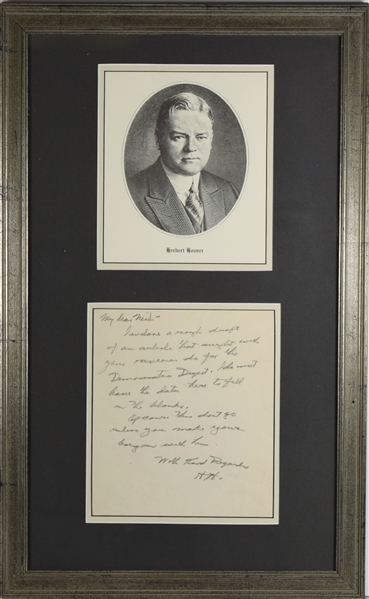 Herbert Hoover
My dear Neil -
I enclose a rough draft
of an article that might with
your revision do for the
Democratic Digest. I do not
have the data here to fill
in the blanks.
Of course this don't go
unless you make your
bargain with him
With Kind Regards
H.H.